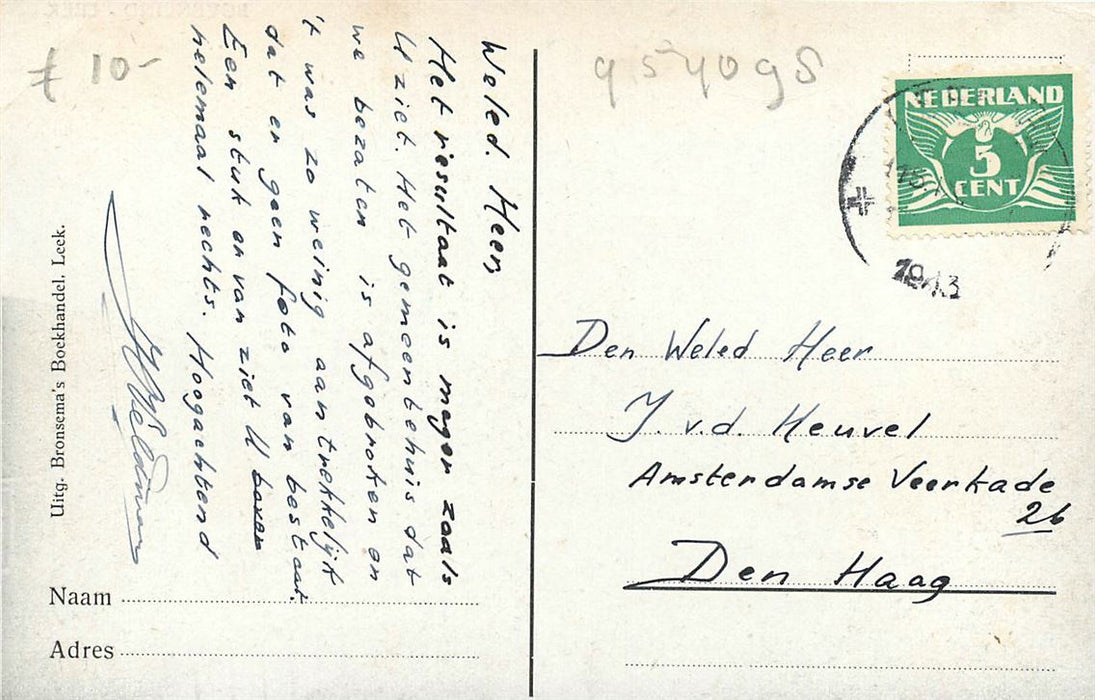 £ 10-
954098
NEDERLAND
5
CENT
1943
Weled. Heer,
Het resultaat is mager zoals
U ziet. Het gemeentehuis dat
we bezaten is afgebroken en
't was zo weinig aantrekkelijk
dat er geen foto van bestaat.
Een stuk er van ziet U boven
helemaal rechts. Hoogachtend
Den Weled Heer
J. v.d. Heuvel
Amsterdamse Veerkade
26
Den Haag
Uitg. Bronsema's Boekhandel. Leek.
Naam
Adres